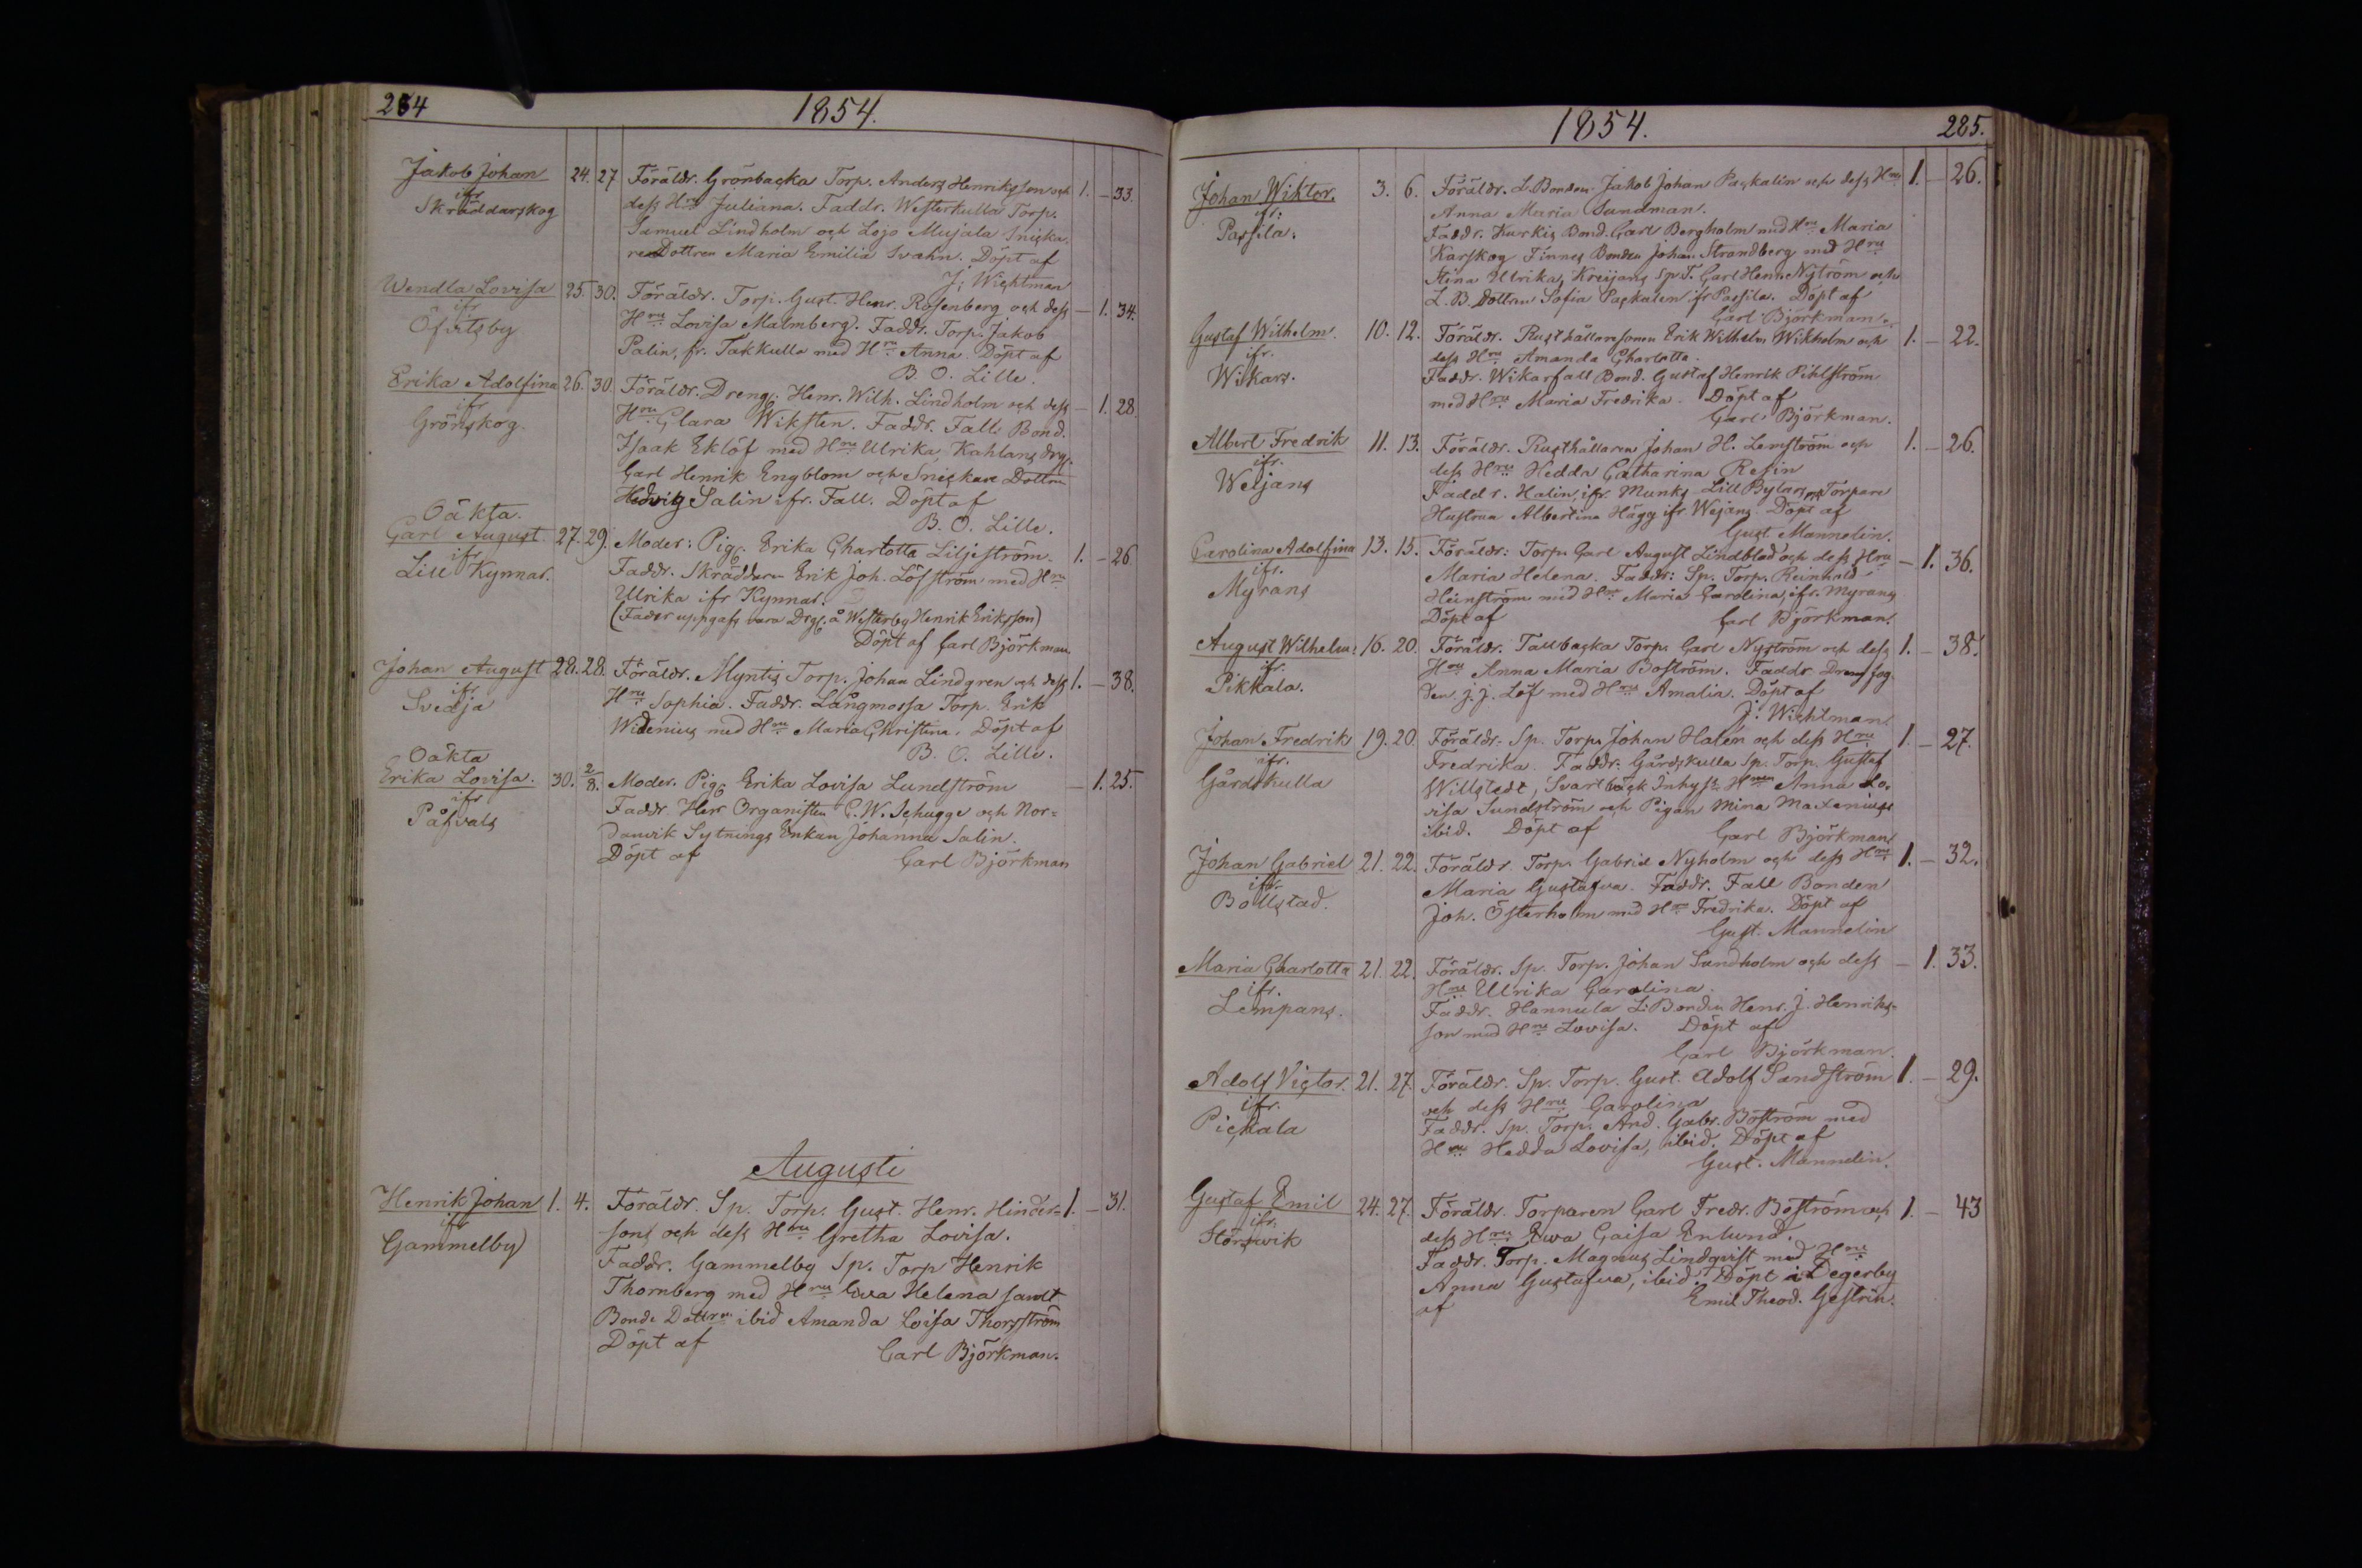 284 1854.
Jakob Johan 24. 27 Föräldr. Grönbacka Torp. Anders Henriksson och 1. – 33.
ifr dess Hru Juliana. Faddr. Westerkulla Torp.
Skräddarskog Samuel Lindholm och Lojo Mujala Snicka-
redottren Maria Emilia Svahn. Döpt af
J. Wichtman
Wendla Lovisa 25. 30. Föräldr. Torp. Gust. Henr. Rosenberg och dess – 1. 34.
ifr Hru Lovisa Malmberg. Faddr. Torp. Jakob
Öfvitsby Palin, fr. Takkulla med Hru Anna. Döpt af
B. O. Lille.
Erika Adolfina 26. 30. Föräldr. Dreng. Henr. Wilh. Lindholm och dess – 1. 28
ifr Hru Clara Wiksten. Faddr. Fall Bond.
Grönskog. Isaak Eklöf med Hru Ulrika, Kahlans drg.
Carl Henrik Engblom och Snickare Dottren
Hedvig Salin ifr. Fall. Döpt af
B. O. Lille.
Oäkta.
Carl August 27. 29. Moder: Pig. Erika Charlotta Liljeström. 1. – 26
ifr Faddr. Skräddaren Erik Joh. Löfström med Hru
Lill Kynnar. Ulrika ifr Kynnar.
(Fader uppgafs vara Drg. å Westerby Henrik Eriksson)
Döpt af Carl Björkman.
Johan August 28. 28. Föräldr. Myntis Torp. Johan Lindgren och dess 1. – 38.
ifr Hru Sophia. Faddr. Långmossa Torp. Erik
Svedja Widenius med Hru Maria Christina. Döpt af
B. O. Lille.
Oäkta
Erika Lovisa. 30. 2/8. Moder. Pig. Erika Lovisa Lundström – 1. 25.
ifr Faddr. Herr Organisten C. W. Schugge och Nor-
Påfvals danvik Sytnings Enkan Johanna Salin.
Döpt af Carl Björkman
Augusti
Henrik Johan 1. 4. Föräldr. Sp. Torp. Gust. Henr. Hinders- 1. – 31.
ifr sons och dess Hru Gretha Lovisa.
Gammelby Faddr. Gammelby Sp. Torp Henrik
Thornberg med Hru Eva Helena samt
Bonde Dottren ibid Amanda Loisa Thorsström
Döpt af Carl Björkman.
1854. 285.
Johan Wiktor. 3. 6. Föräldr. L. Bonden Jakob Johan Paskalin och dess Hru 1. – 26.
ifr. Anna Maria Sandman.
Passila. Faddr. Kurkis Bond. Carl Bergholm med Hru Maria
Karskog Finnes Bonden Johan Strandberg med Hru
Stina Ulrika, Kreijans Sp T. Carl Henr. Nyström och
L. B. Dottren Sofia Paskalen ifr Passila. Döpt af
Carl Björkman.
Gustaf Wilhelm. 10. 12. Föräldr. Rusthållaresonen Erik Wilhelm Wikholm och 1. – 22.
ifr. dess Hru Amanda Charlotta.
Wikars. Faddr. Wikarfall Bond. Gustaf Henrik Pihlström
med Hru Maria Fredrika. Döpt af
Carl Björkman.
Albert Fredrik 11. 13. Föräldr. Rusthållaren Johan H. Lemström och 1. – 26.
ifr. dess Hru Hedda Catharina Resin
Weijans Faddr. Halin, ifr. Munks Lill Bylars och Torpare
Hustrun Albertina Hägg ifr Wejans. Döpt af
Gust. Mannelin.
Carolina Adolfina 13. 15. Föräldr: Torp. Carl August Lindblad och dess Hru – 1. 36.
ifr. Maria Helena. Faddr: Sp. Torp. Reinhold
Myrans Heinström med Hru Maria Carolina, ifr. Myrans
Döpt af Carl Björkman.
August Wilhelm 16. 20. Föräldr. Tallbacka Torp. Carl Nyström och dess 1. – 38.
ifr. Hru Anna Maria Boström. Faddr. Drengfog-
Pikkala. den J. J. Löf med Hru Amalia. Döpt af
J. Wichtman.
Johan Fredrik 19. 20. Föräldr. Sp. Torp. Johan Halén och dess Hru 1. – 27.
ifr. Fredrika. Faddr. Gårdskulla Sp. Torp. Gustaf
Gårdskulla Willstedt, Svartbäck Inhys. Hrun Anna Lo-
visa Sundström och Pigan Mina Maxenius
ibid. Döpt af Carl Björkman
Johan Gabriel 21. 22. Föräldr. Torp. Gabriel Nyholm och dess Hru 1. – 32.
ifr. Maria Gustafva. Faddr. Fall Bonden
Bollstad. Joh. Österholm med Hru Fredrika. Döpt af
Gust. Mannelin
Maria Charlotta 21. 22. Föräldr. Sp. Torp. Johan Sundholm och dess – 1. 33.
ifr. Hru Ulrika Carolina.
Lempans. Faddr. Hannula L. Bonden Henr. J. Henriks-
son med Hru Lovisa. Döpt af
Carl Björkman.
Adolf Victor. 21. 27. Föräldr. Sp. Torp. Gust. Adolf Sandström 1. – 29.
ifr. och dess Hru Carolina
Pickala Faddr. Sp. Torp. And. Gabr. Boström med
Hru Hedda Lovisa, ibid. Döpt af
Gust. Mannelin.
Gustaf Emil 24. 27. Föräldr. Torparen Carl Fredr. Boström och 1. – 43
ifr. dess Hru Ewa Caisa Enlund.
Störsvik Faddr. Torp. Magnus Lindqvist med Hru
Anna Gustafva, ibid. Döpt i Degerby
af Emil Theod. Gestrin.